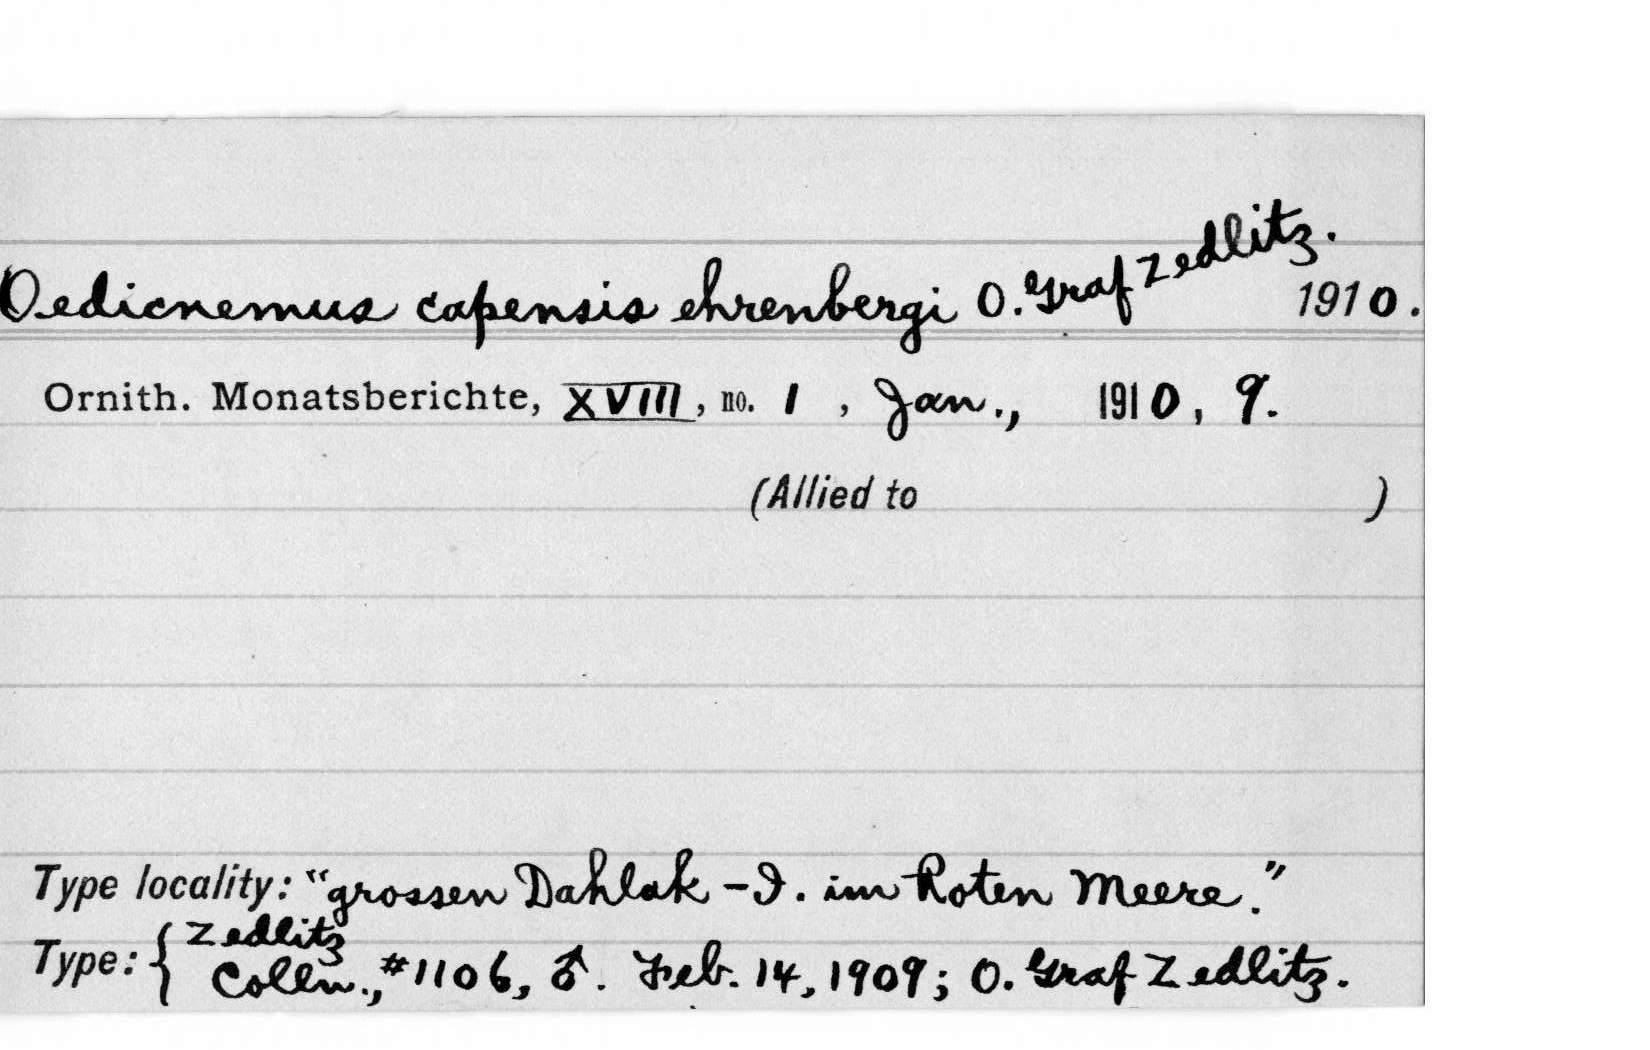 Oedicnemus capensis ehrenbergi O. Graf Zedlitz. 1910.
Ornith. Monatsberichte, XVIII, no. 1, Jan., 1910, 9.
(Allied to )
Type locality: "grossen Dahlak-I. im Roten Meere."
Type: { Zedlitz
Colln., #1106, ♂. Feb. 14, 1909; O. Graf Zedlitz.